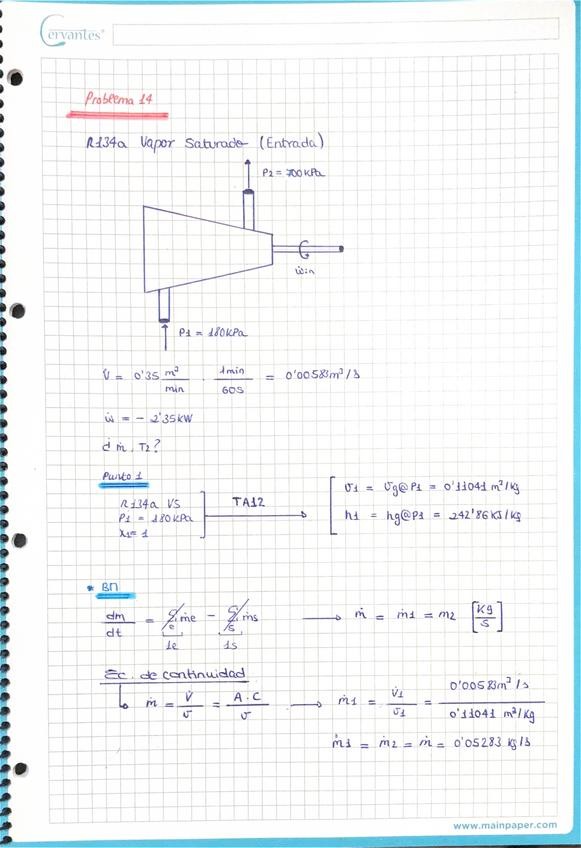 Cervantes®
Problema 14
R134a Vapor Saturado (Entrada)
P2 = 700KPa
Ẇin
P1 = 180KPa
V̇ = 0'35 m³/min · 1min/60s = 0'00583m³/s
ẇ = - 2'35KW
¿ ṁ, T2?
Punto 1
R134a VS
P1 = 180KPa
X1= 1
TA12
v1 = vg@P1 = 0'11041 m³/Kg
h1 = hg@P1 = 242'86KJ/Kg
* BM
dm/dt = Σe ṁe - Σs ṁs → ṁ = ṁ1 = m2 [Kg/s]
1e 1s
Ec. de continuidad
ṁ = V̇/v = A.C/v → ṁ1 = V̇1/v1 = 0'00583m³/s / 0'11041 m³/Kg
ṁ1 = ṁ2 = ṁ = 0'05283 Kg/s
www.mainpaper.com